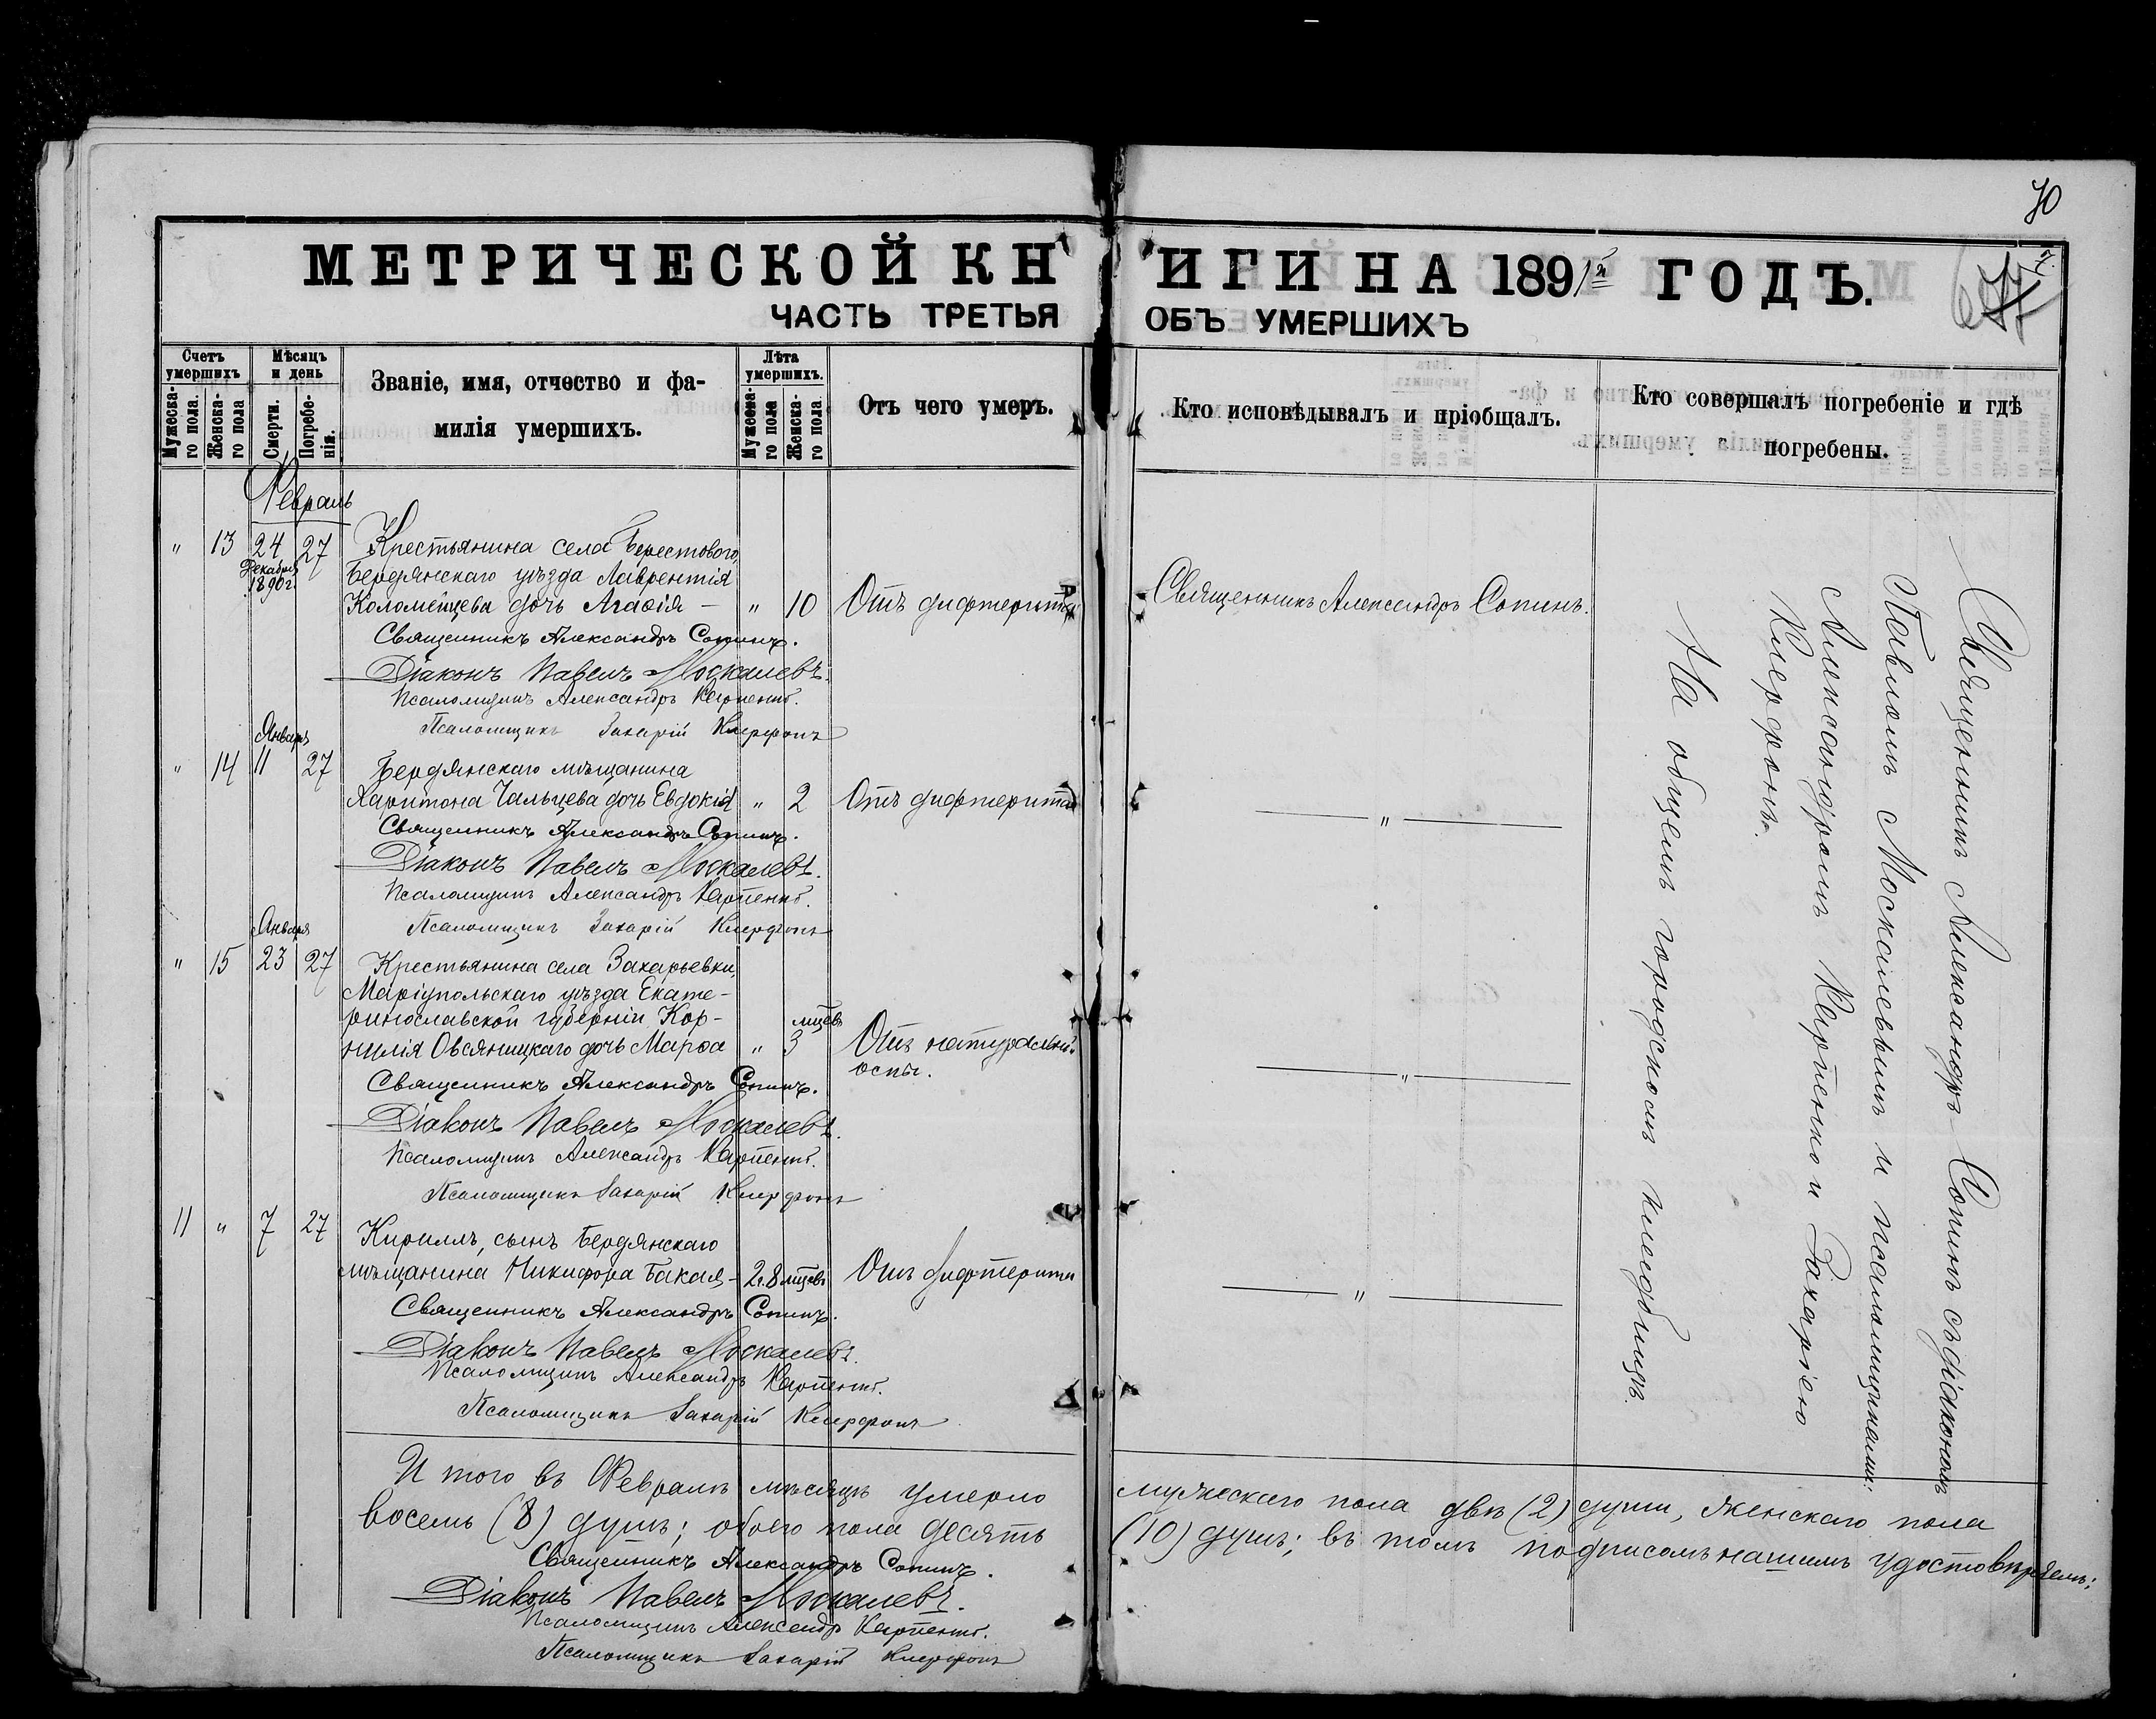 70
МЕТРИЧЕСКОЙ КНИГИ НА 1891й ГОДЪ.
ЧАСТЬ ТРЕТЬЯ ОБЪ УМЕРШИХЪ
Счетъ умершихъ
Мужеска-
го пола.
Женска-
го пола
Мѣсяцъ и день
Смерти.
Погребе-
нія.
Званіе, имя, отчество и фа-
милія умершихъ.
Лѣта умершихъ.
Мужеска-
го пола
Женска-
го пола.
Отъ чего умеръ.
Кто исповѣдывалъ и пріобщалъ.
Кто совершалъ погребеніе и гдѣ
погребены.
Февраль
" 13 24 27 Крестьянина села Берестового,
Декабря
1890 г.
Бердянскаго уѣзда Лаврентія
Коломейцева дочь Агафія — " 10 Отъ дифтерита Священникъ Александръ Сопинъ.
Священникъ Александръ Сопинъ.
Діаконъ Павелъ Москалевъ.
Псаломщикъ Александръ Карпенко.
Псаломщикъ Захарій Клерфонъ
Январь
" 14 11 27 Бердянскаго мѣщанина
Харитона Чальцева дочь Евдокія " 2 Отъ дифтерита — " —
Священникъ Александръ Сопинъ.
Діаконъ Павелъ Москалевъ.
Псаломщикъ Александръ Карпенко.
Псаломщикъ Захарій Клерфонъ
Января
" 15 23 27 Крестьянина села Захарьевки,
Маріупольскаго уѣзда Екате-
ринославской губерніи Кор-
нилія Овсяницкаго дочь Марфа " 3 мцевъ Отъ натуральной
оспы.
— " —
Священникъ Александръ Сопинъ.
Діаконъ Павелъ Москалевъ.
Псаломщикъ Александръ Карпенко.
Псаломщикъ Захарій Клерфонъ
11 " 7 27 Кириллъ, сынъ Бердянскаго
мѣщанина Никифора Бакая — 2 г. 8 мцевъ Отъ дифтерита — " —
Священникъ Александръ Сопинъ.
Діаконъ Павелъ Москалевъ.
Псаломщикъ Александръ Карпенко.
Псаломщикъ Захарій Клерфонъ
Священникъ Александръ Сопинъ съ діакономъ
Павломъ Москалевымъ и псаломщиками:
Александромъ Карпенко и Захаріею
Клерфонъ.
На общемъ городскомъ кладбищѣ.
И того въ Февралѣ мѣсяцѣ умерло мужескаго пола двѣ (2) души, женскаго пола
восемь (8) душъ; обоего пола десять (10) душъ; въ томъ подписомъ нашимъ удостовѣряемъ:
Священникъ Александръ Сопинъ.
Діаконъ Павелъ Москалевъ.
Псаломщикъ Александръ Карпенко.
Псаломщикъ Захарій Клерфонъ